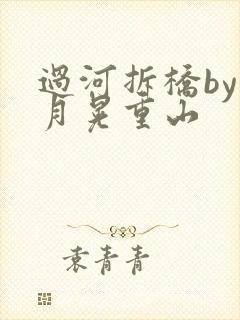 過河拆橋by
月晃重山
袁青青